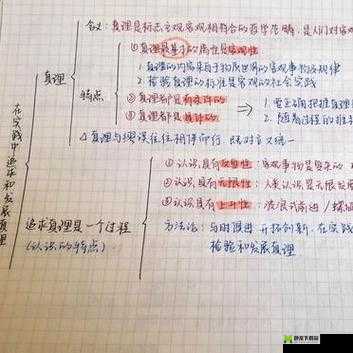 含义：真理是标志主观客观相符合的哲学范畴，是人们对客观
①真理最基本的属性是客观性
1.真理的内容来自于物质世界的客观事物及规律
2.检验真理的标准是客观的社会实践
真理
特点
②真理都是有条件的
③真理都是具体的
⇒
1.要正确把握真理
2.随着过程的推移
△真理与谬误往往相伴而行，既对立又统一
在实践中追求和发展真理
①认识具有反复性：客观事物是复杂的
②认识具有无限性：人类认识是无限发展
③认识具有上升性：波浪式前进/螺旋
追求真理是一个过程
(认识的特点)
方法论：与时俱进 开拓创新，在实践
检验和发展真理